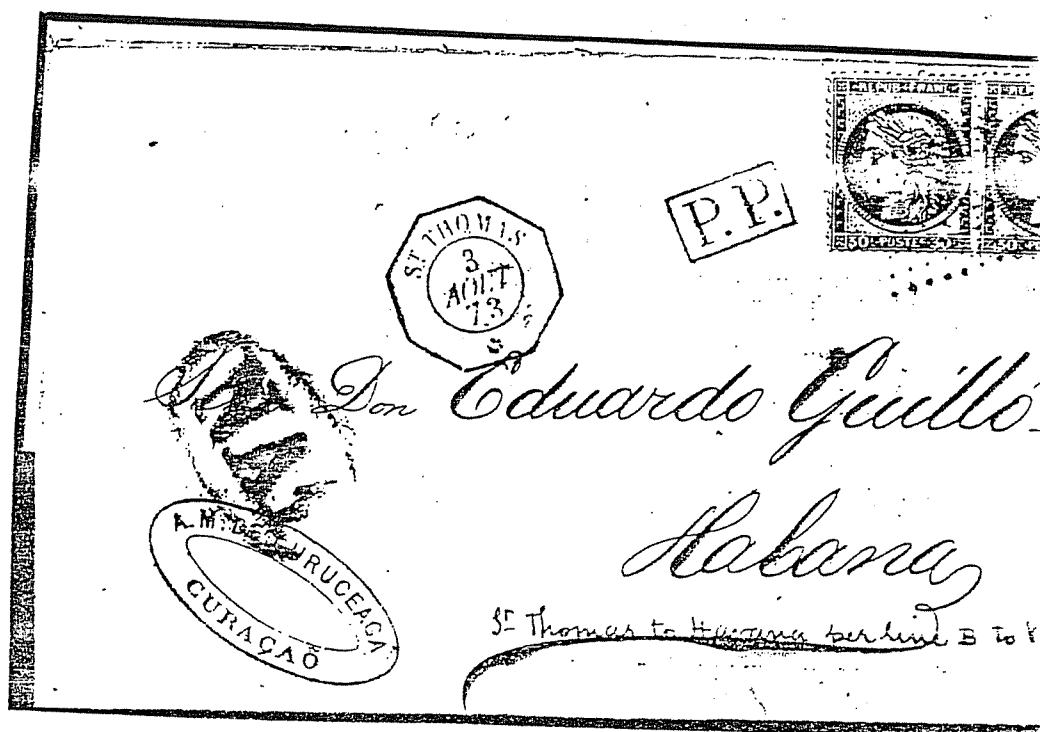 REPUB FRANC
REP
30 C POSTES 30
30 C P
P.P.
ST THOMAS
3
AOUT
73
Don Eduardo Guilló
Habana
A. M. URUCEAGA
CURAÇAÕ
St Thomas to Havana per line B to V